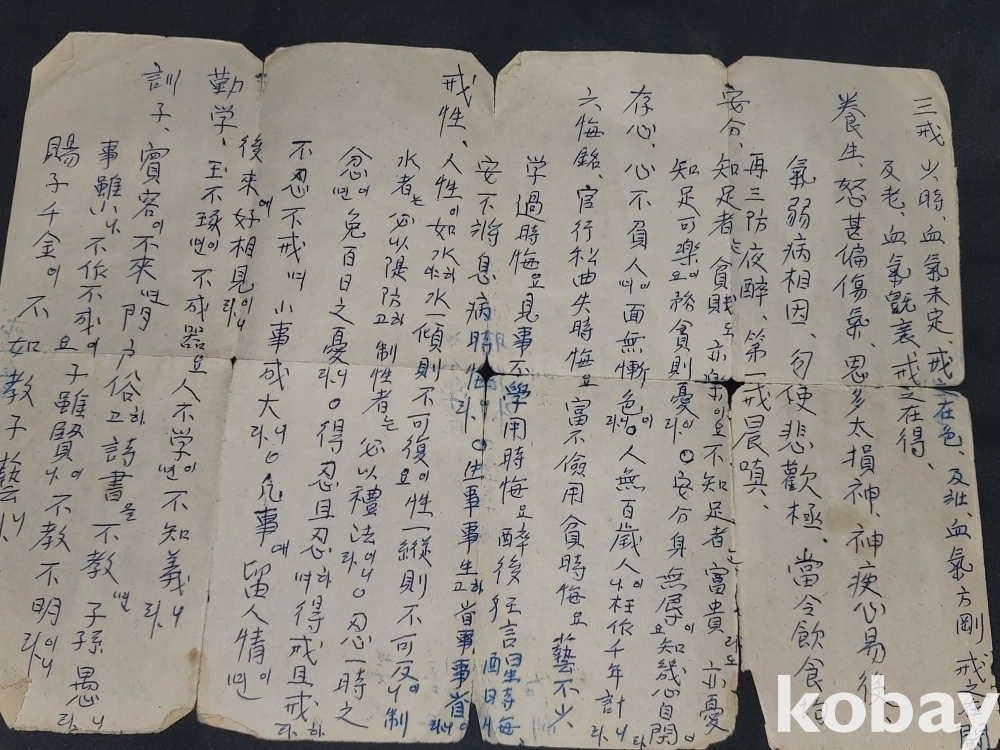 三戒 少時, 血氣未定, 戒之在色, 及壯, 血氣方剛 戒之在鬪
及老, 血氣旣衰 戒之在得,
養生, 怒甚偏傷氣, 思多太損神, 神疲心易役,
氣弱病相因, 勿使悲歡極, 當令飮食均
再三防夜醉, 第一戒晨嗔,
安分, 知足者는 貧賤도 亦樂이요 不知足者는 富貴라도 亦憂
知足可樂이요 務貪則憂라 ○ 安分身無辱이요 知幾心自閑이○
存心, 心不負人이면 面無慚色이라○ 人無百歲人이나 枉作千年計니라
六悔銘, 官行私曲失時悔요 富不儉用貧時悔요 藝不少
学過時悔요 見事不學用時悔요 醉後狂言醒時悔
安不將息病時悔라 ○ 生事事生하고 省事事省이니라
戒性, 人性이 如水하야 水一傾則不可復이요 性一縱則不可反이니 制
水者는 必以隄防하고 制性者는 必以禮法이니라 ○ 忍一時之
忿이면 免百日之憂니라 ○ 得忍且忍하며 得戒且戒하라
不忍不戒며 小事成大니라 ○ 凡事에 留人情이면
後來에 好相見이니라
勤学, 玉不琢이면 不成器요 人不学이면 不知義니라
訓子, 賓客이 不來면 門戶俗하고 詩書을 不敎면 子孫愚니라
事雖小나 不作不成이요 子雖賢이나 不敎不明이니라
賜子千金이 不如敎子藝니
kobay